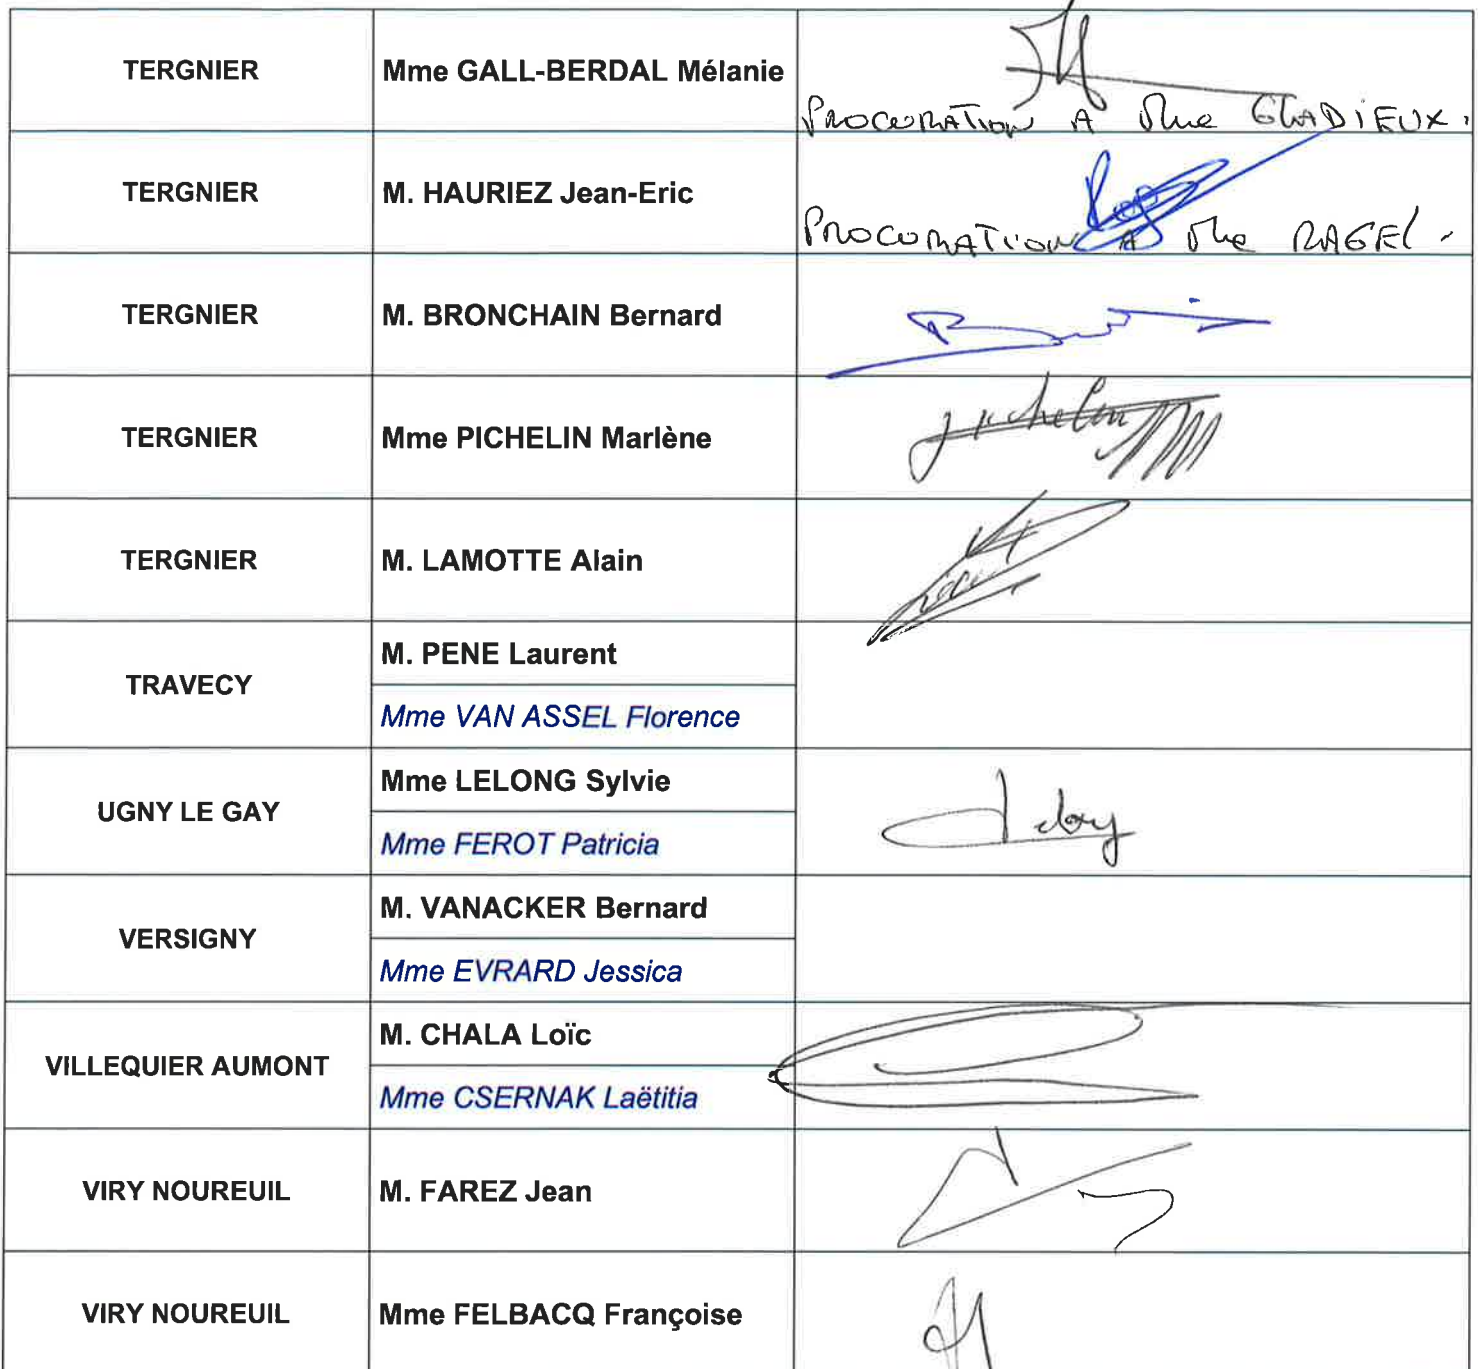 TERGNIER
Mme GALL-BERDAL Mélanie
PROCURATION A Mme GLADIEUX.
TERGNIER
M. HAURIEZ Jean-Eric
PROCURATION A Mme RAGEL.
TERGNIER
M. BRONCHAIN Bernard
TERGNIER
Mme PICHELIN Marlène
TERGNIER
M. LAMOTTE Alain
TRAVECY
M. PENE Laurent
Mme VAN ASSEL Florence
UGNY LE GAY
Mme LELONG Sylvie
Mme FEROT Patricia
VERSIGNY
M. VANACKER Bernard
Mme EVRARD Jessica
VILLEQUIER AUMONT
M. CHALA Loïc
Mme CSERNAK Laëtitia
VIRY NOUREUIL
M. FAREZ Jean
VIRY NOUREUIL
Mme FELBACQ Françoise